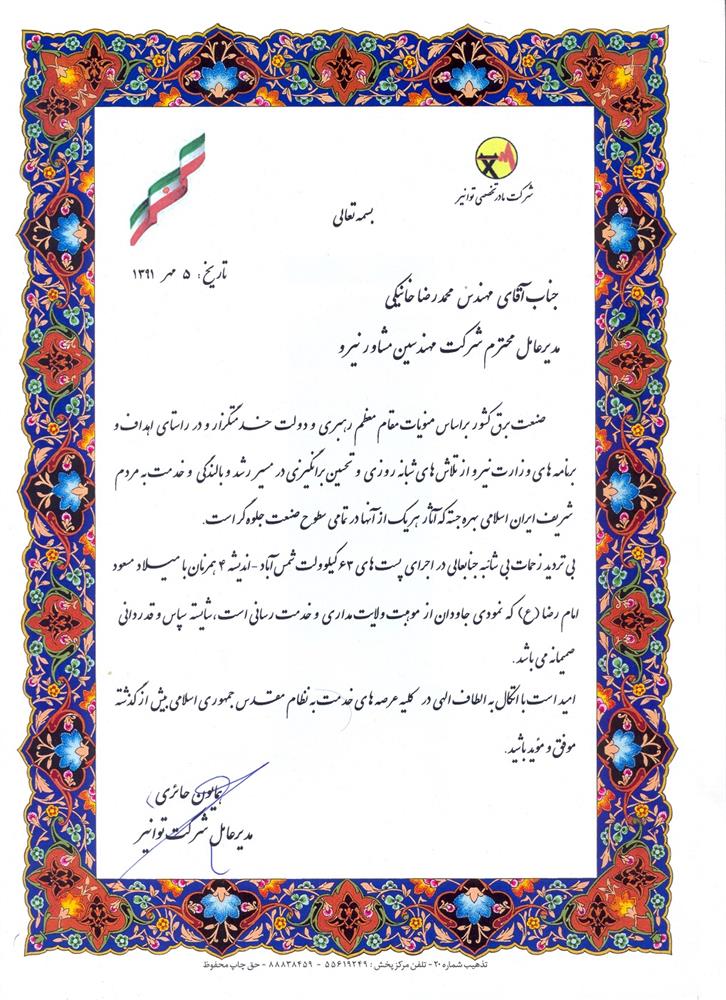 شرکت مادر تخصصی توانیر
بسمه تعالی
تاریخ: ۵ مهر ۱۳۹۱
جناب آقای مهندس محمدرضا خانیکی
مدیرعامل محترم شرکت مهندسین مشاور نیرو
صنعت برق کشور براساس منویات مقام معظم رهبری و دولت خدمتگزار و در راستای اهداف و
برنامه های وزارت نیرو از تلاش های شبانه روزی و تحسین برانگیزی در مسیر رشد و بالندگی و خدمت به مردم
شریف ایران اسلامی بهره جسته که آثار هر یک از آنها در تمامی سطوح صنعت جلوه گر است.
بی تردید زحمات بی شائبه جنابعالی در اجرای پست های ۶۳ کیلوولت شمس آباد - اندیشه ۴ همزمان با میلاد مسعود
امام رضا (ع) که نمودی جاودان از موهبت ولایت مداری و خدمت رسانی است، شایسته سپاس و قدردانی
صمیمانه می باشد.
امید است با اتکال به الطاف الهی در کلیه عرصه های خدمت به نظام مقدس جمهوری اسلامی بیش از گذشته
موفق و مؤید باشید.
همایون حائری
مدیرعامل شرکت توانیر
تذهیب شماره ۲۰ - تلفن مرکز پخش: ۵۵۶۱۹۲۴۹ - ۸۸۸۳۸۴۵۹ - حق چاپ محفوظ